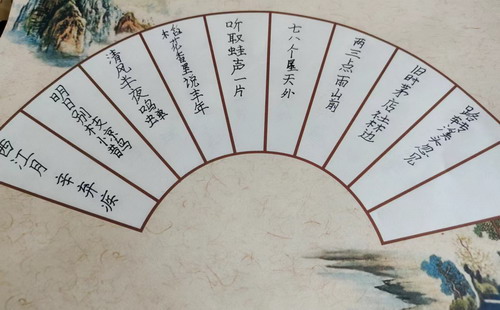 西江月 辛弃疾
明日别枝惊鹊
清风半夜鸣蝉
稻花香里说丰年
听取蛙声一片
七八个星天外
两三点雨山前
旧时茅店社林边
路转溪头忽见